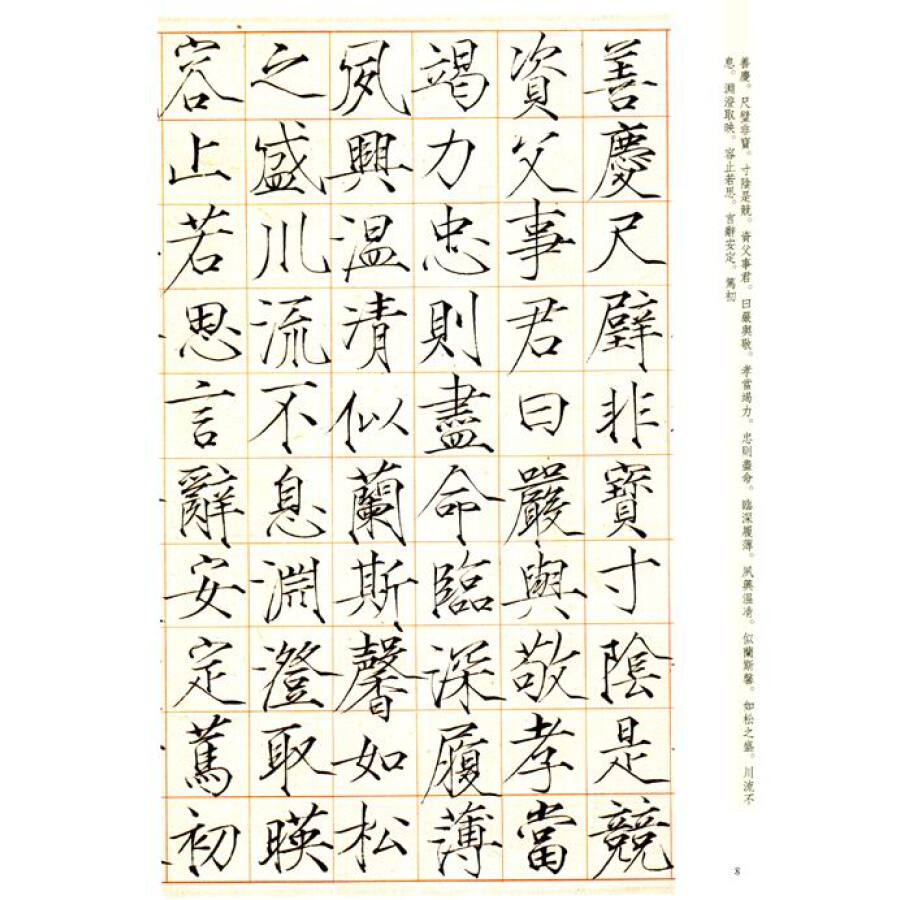 善慶。尺璧非寶。寸陰是競。資父事君。曰嚴與敬。孝當竭力。忠則盡命。臨深履薄。夙興溫凊。似蘭斯馨。如松之盛。川流不
息。淵澄取映。容止若思。言辭安定。篤初
善慶尺璧非寶寸陰是競
資父事君曰嚴與敬孝當
竭力忠則盡命臨深履薄
夙興温凊似蘭斯馨如松
之盛川流不息淵澄取暎
容止若思言辭安定篤初
8